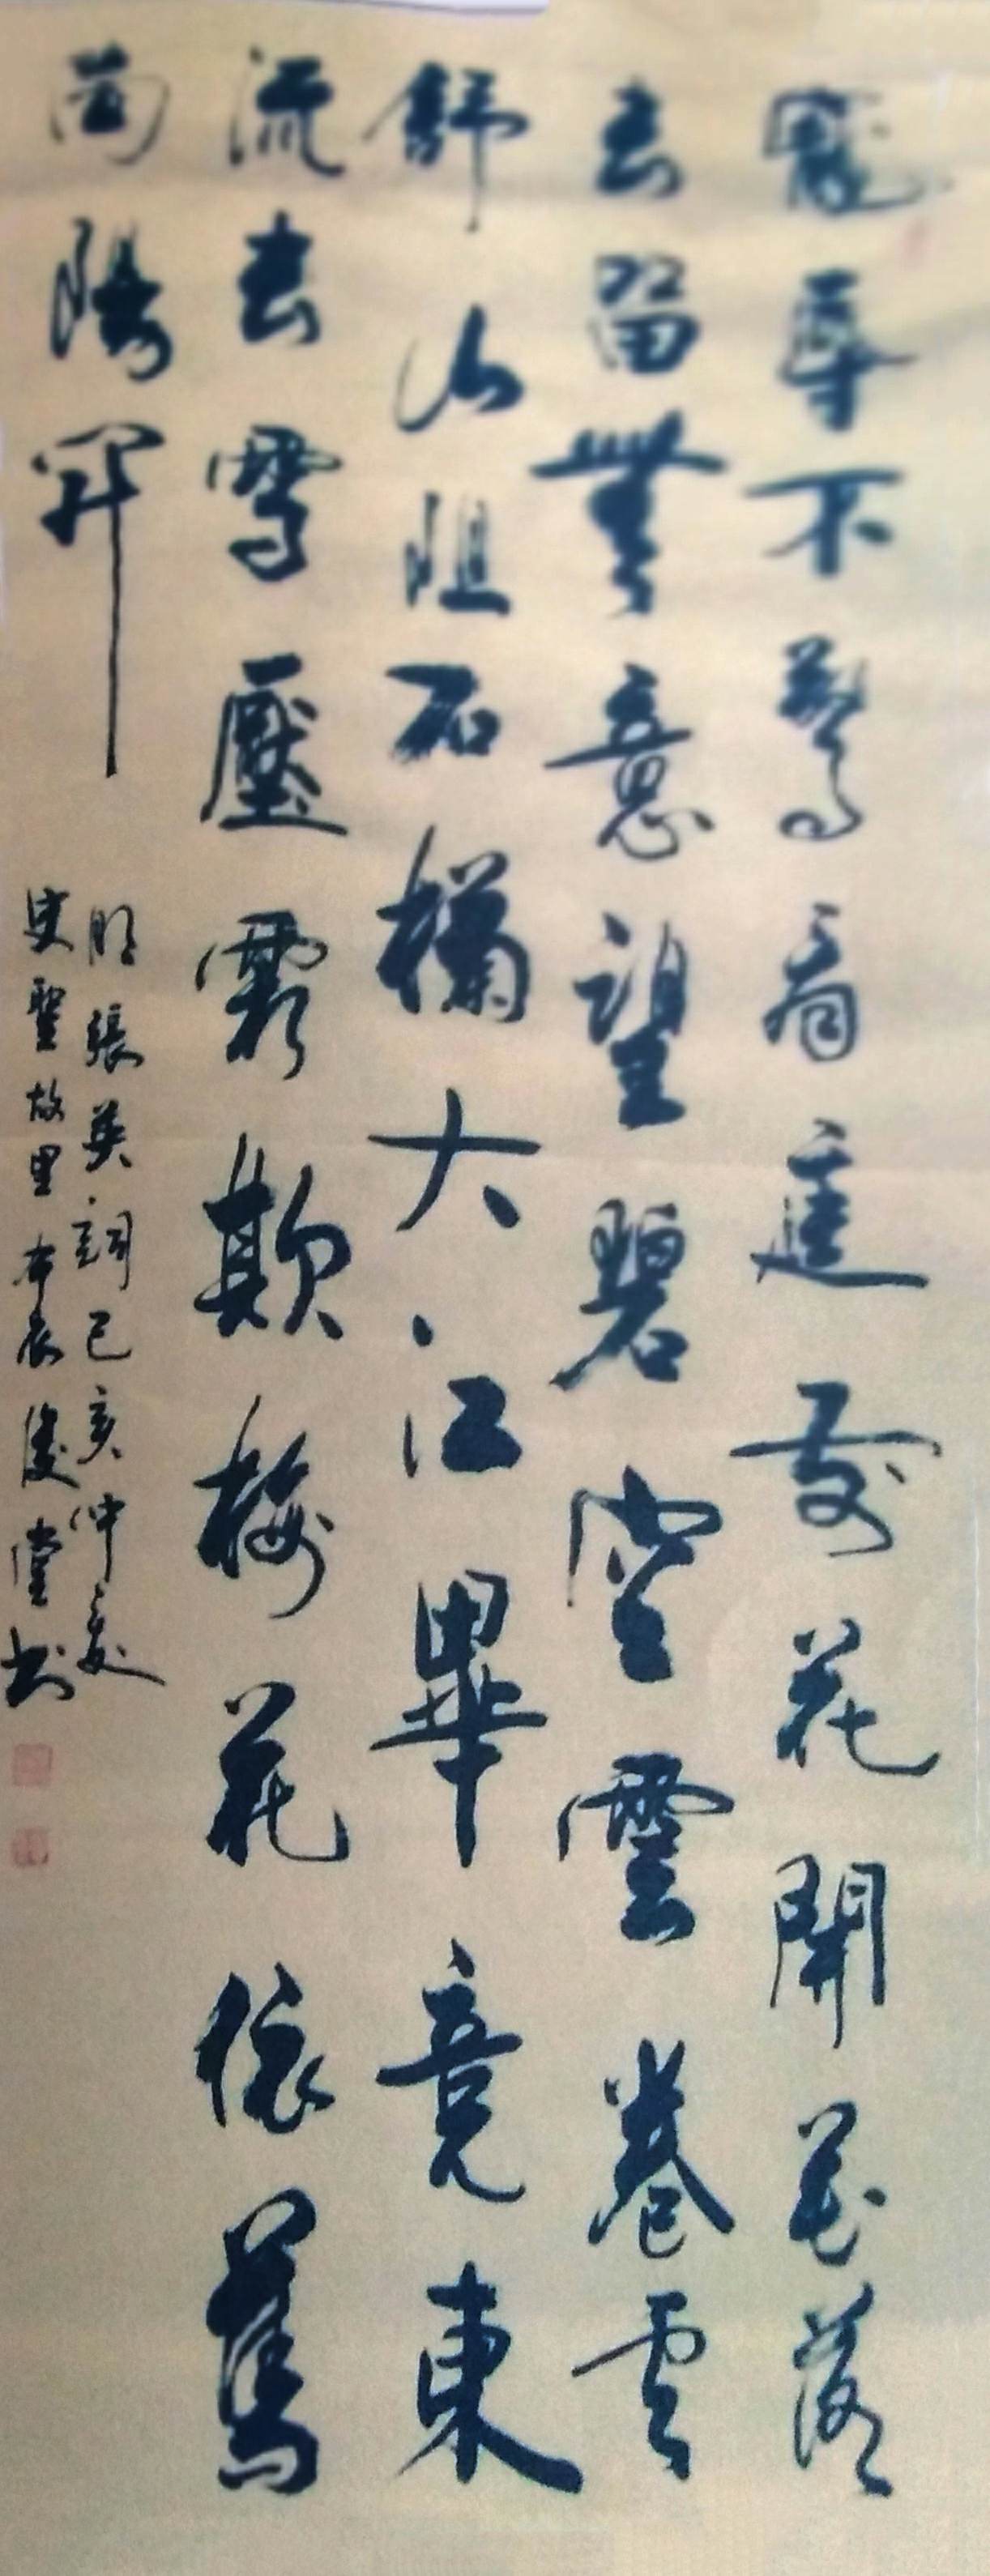 寵辱不驚看庭前花開花落
去留無意望碧空雲卷雲
舒山阻石欄大江畢竟東
流去雪壓霜欺梅花依舊
向陽開
明張英詞己亥仲夏
史聖故里布衣俊堂书